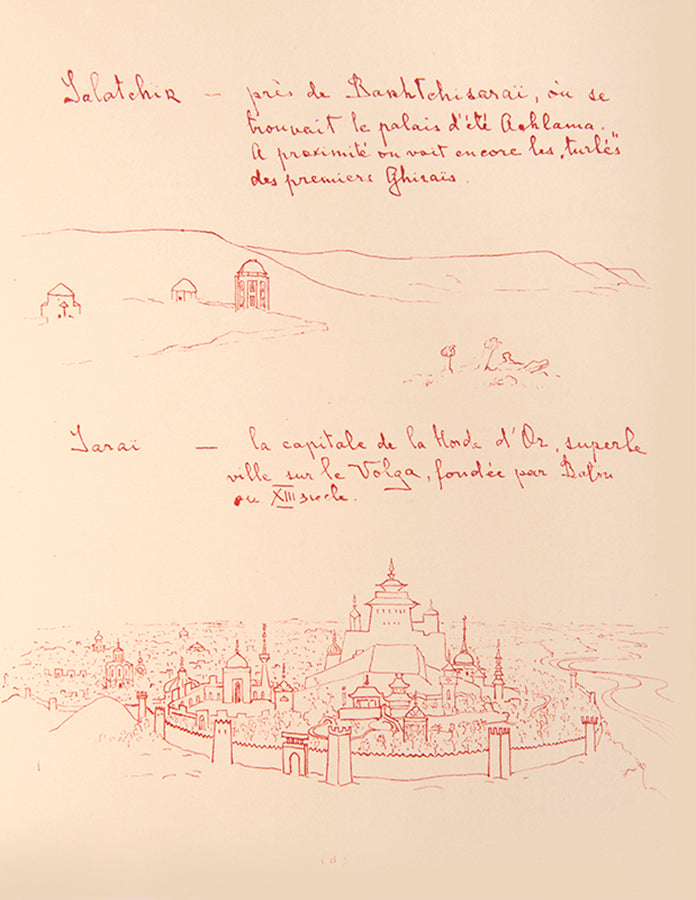 Salatchik — près de Bakhtchisaraï, où se
trouvait le palais d'été Achlama.
A proximité on voit encore les „turbés"
des premiers Ghiraïs.
Saraï — la capitale de la Horde d'Or, superbe
ville sur le Volga, fondée par Batou
au XIII siècle.
(d)